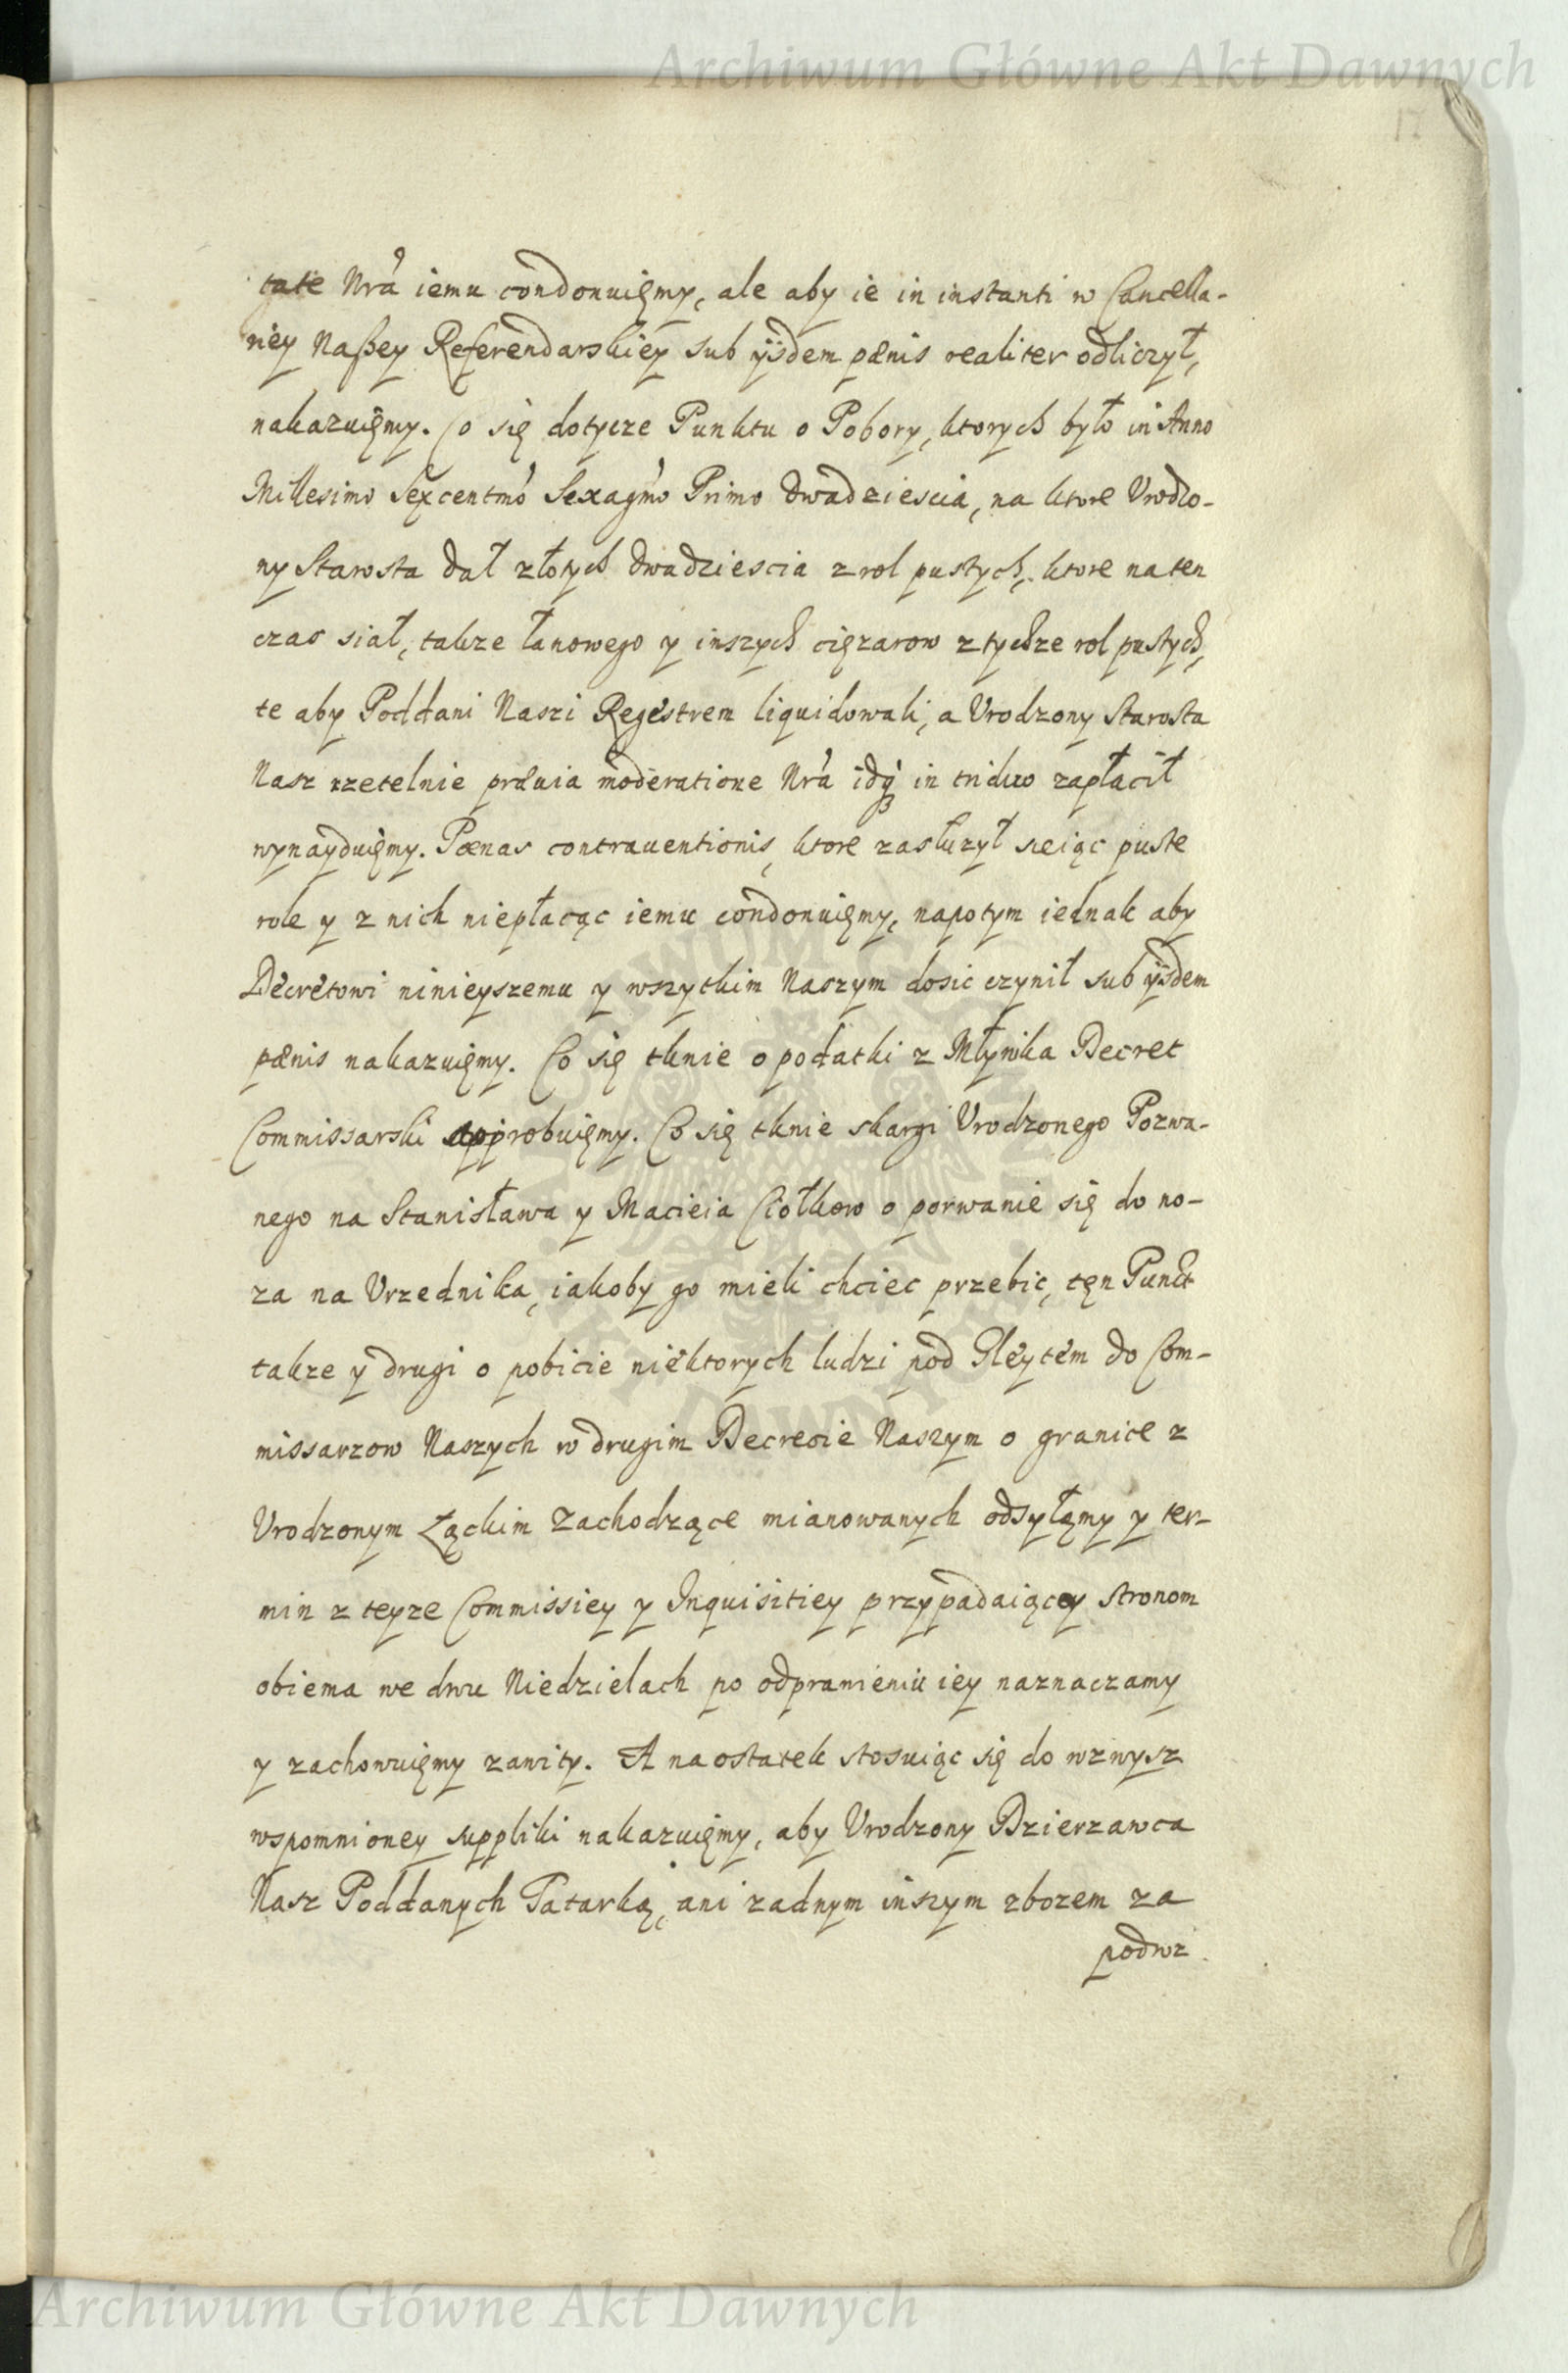 Archiwum Główne Akt Dawnych
17
tate Nra iemu condonuięmy, ale aby ie in instanti w Cancella-
riey Naßey Referendarskiey sub ijsdem pænis realiter odliczył,
nakazuięmy. Co się dotycze Punktu o Pobory, ktorych było in Anno
Millesimo Sexcentmo Sexagmo Primo dwadziescia, na ktore Vrodzo-
ny Starosta dał złotych dwadziescia z rol pustych, ktore na ten
czas siał, takze łanowego y inszych cięzarow z tychze rol pustych,
te aby Poddani Naszi Regestrem liquidowali, a Vrodzony Starosta
Nasz rzetelnie præuia moderatione Nra idq in triduo zapłacił
wynayduięmy. Pœnas contrauentionis, ktore zasłuzył sieiąc puste
role y z nich niepłacąc iemu condonuięmy, napotym iednak aby
Decretowi ninieyszemu y wszytkim Naszym dosic czynił sub ijsdem
pænis nakazuięmy. Co się tknie o podatki z Młynika Decret
Commissarski approbuięmy. Co się tknie skargi Vrodzonego Pozwa-
nego na Stanisława y Macieia Ciołkow o porwanie się do no-
za na Vrzednika, iakoby go mieli chciec przebic, tęn Punkt
takze y drugi o pobicie niektorych ludzi pod Gleytem do Com-
missarzow Naszych w drugim Decrecie Naszym o granice z
Vrodzonym Łąckim zachodzące mianowanych odsyłamy y ter-
min z teyze Commissiey y Inquisitiey przypadaiącey stronom
obiema we dwu Niedzielach po odprawieniu iey naznaczamy
y zachowuięmy zawity. A na ostatek stosuiąc się do wzwysz
wspomnioney suppliki nakazuięmy, aby Vrodzony Dzierzawca
Nasz Poddanych Tatarką, ani zadnym inszym zbozem za
podwz
Archiwum Główne Akt Dawnych